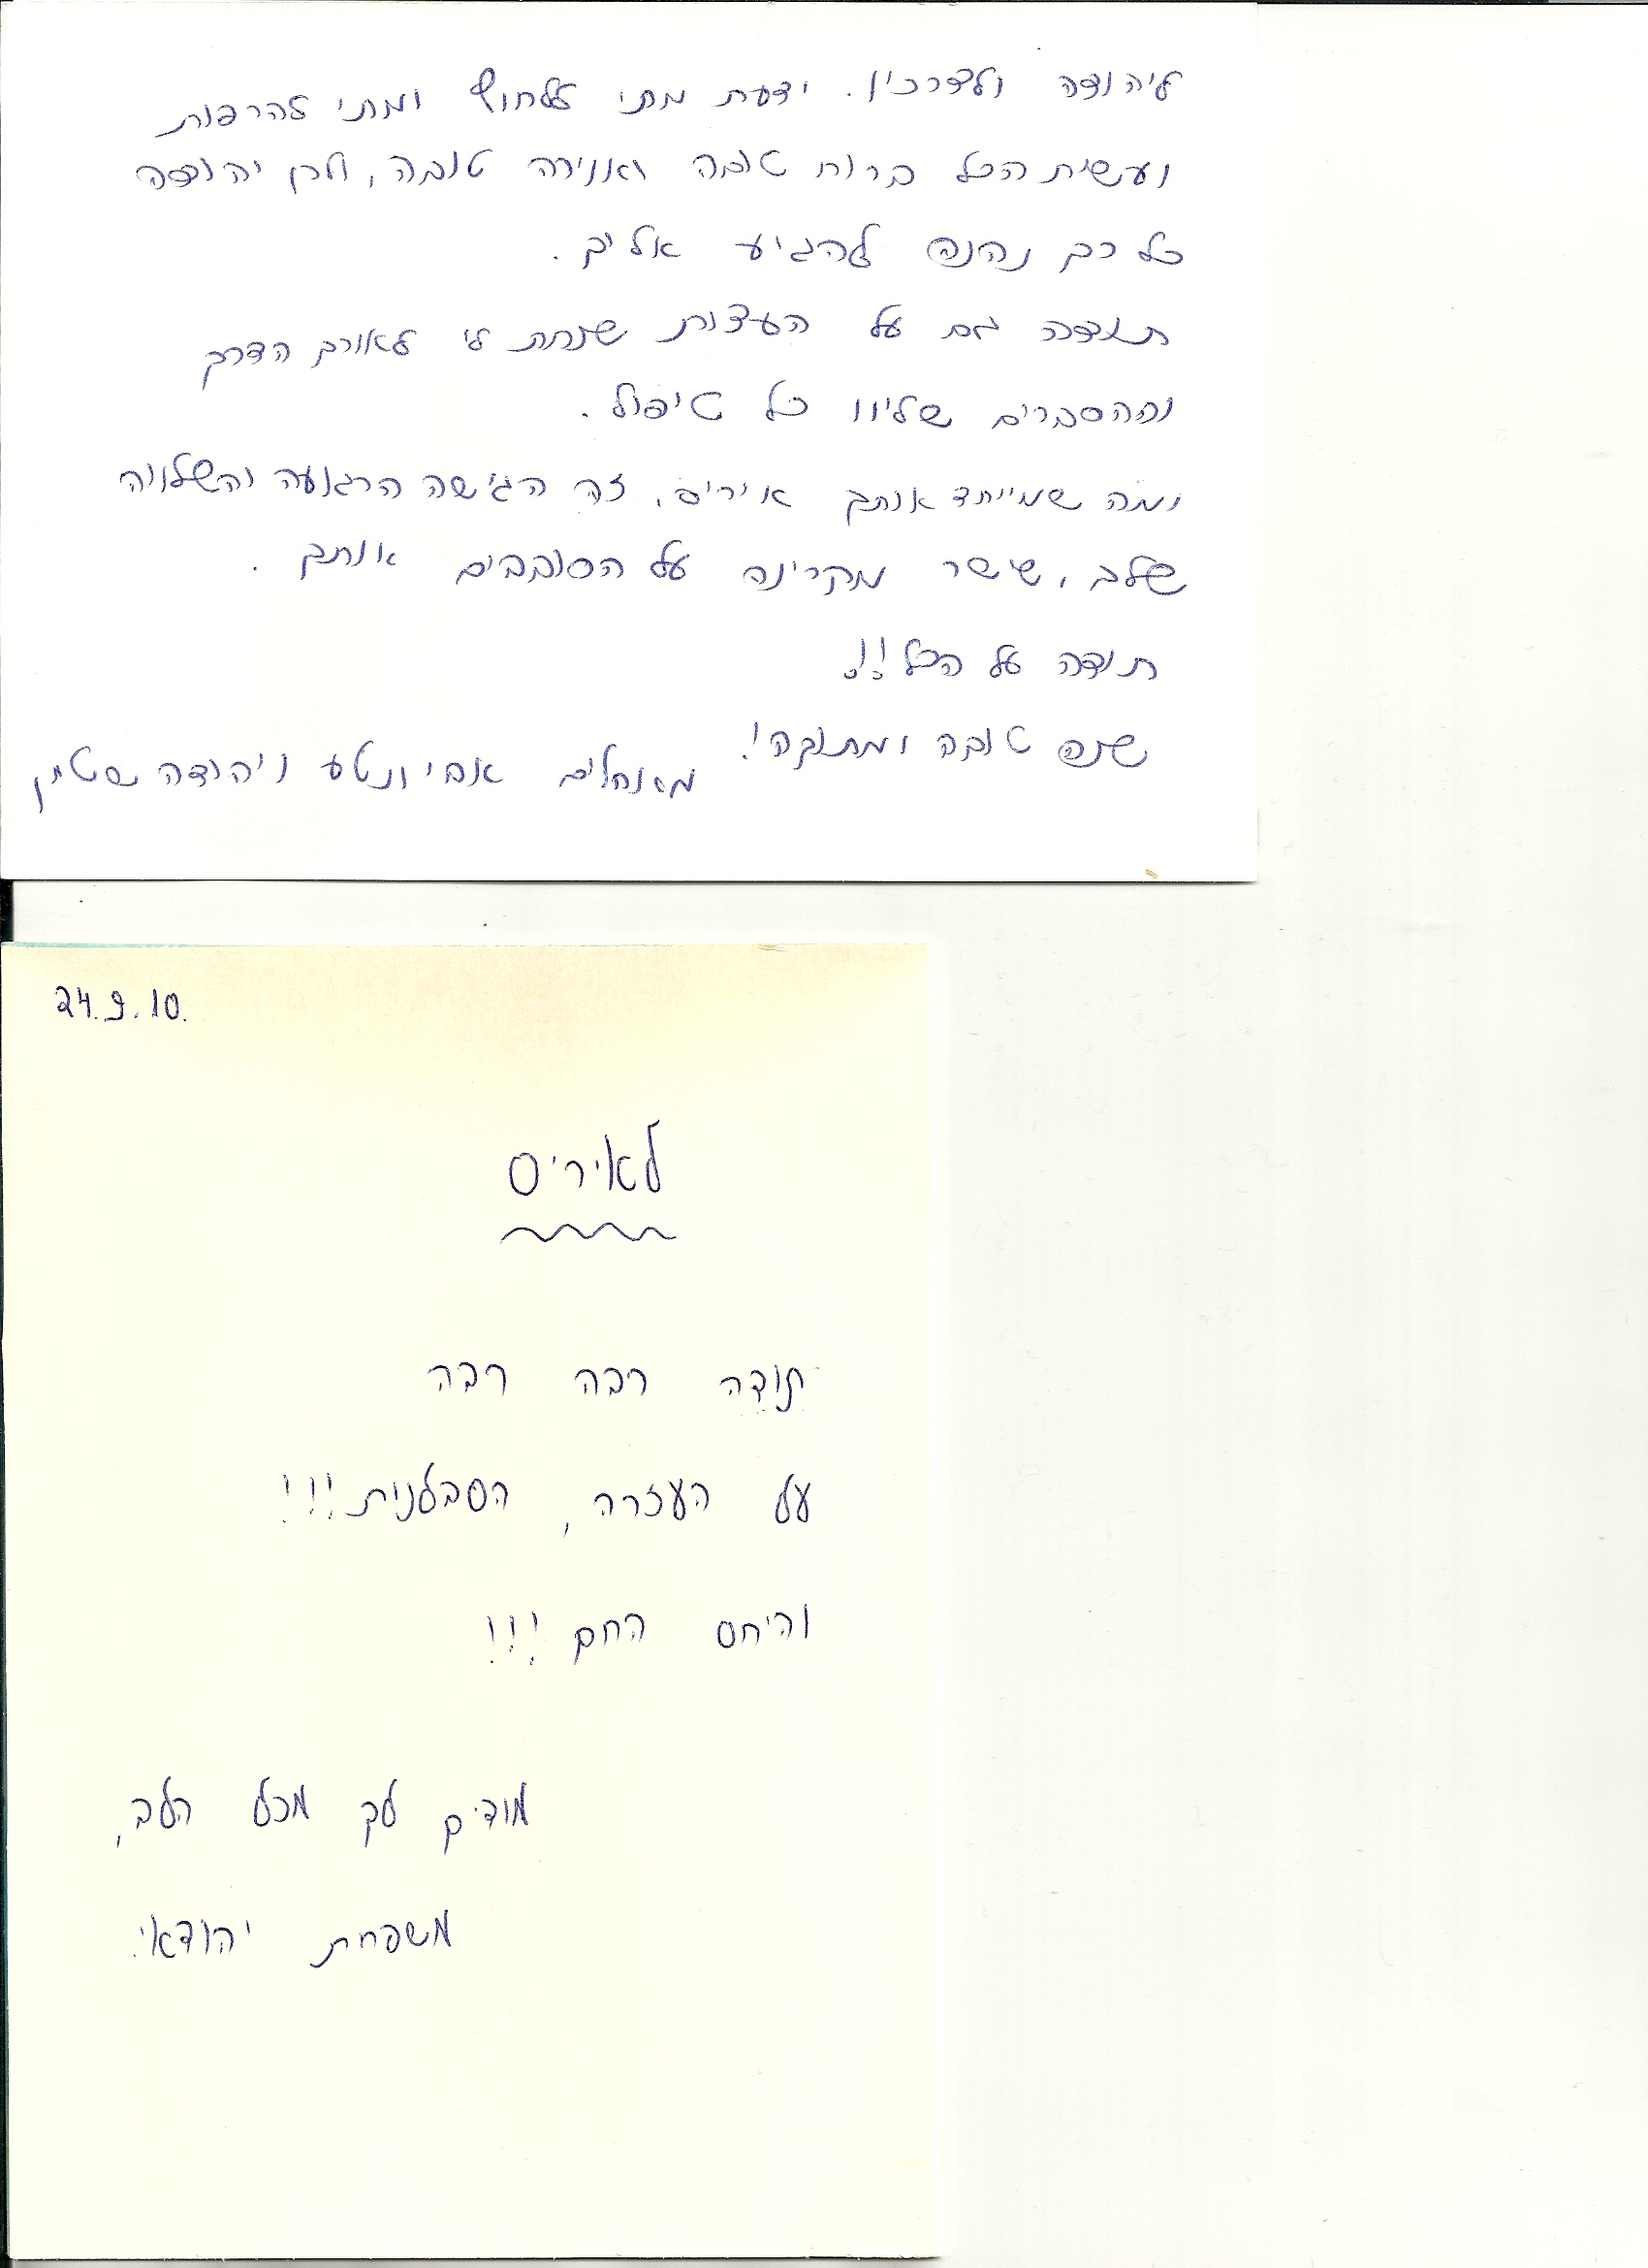 ליהודה ולצרכיו. ידעת מתי ללחוץ ומתי להרפות
ועשית הכל ברוח טובה ואוירה טובה, ולכן יהודה
כל כך נהנה להגיע אליך.
תודה גם על העצות שנתת לי לאורך הדרך
וההסברים שליוו כל טיפול.
ומה שמייחד אותך איריס, זה הגישה הרגועה והשלווה
שלך, שישר מקרינה על הסובבים אותך.
תודה על הכל!!
שנה טובה ומתוקה!
מאחלים אבי ונטע ויהודה שטמן
24.9.10.
לאיריס
תודה רבה רבה
על העזרה, הסבלנות!!!
והיחס החם!!!
מודים לך מכל הלב,
משפחת יהודאי.